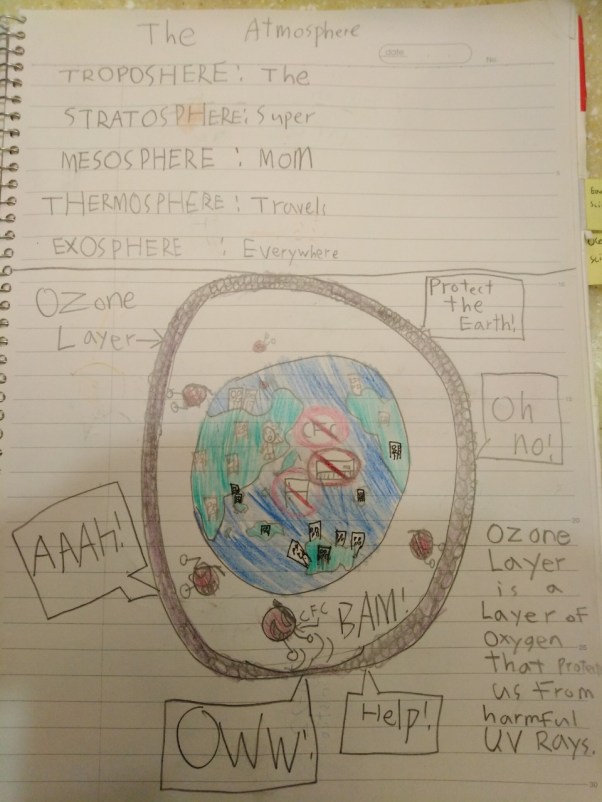 The Atmosphere
TROPOSHERE: The
STRATOSPHERE: Super
MESOSPHERE : MOM
THERMOSPHERE: Travels
EXOSPHERE : Everywhere
Ozone
Layer→
Protect
the
Earth!
Oh
no!
CFC
AAAh!
CFC
BAM!
OWW!
Help!
Ozone
Layer
is a
Layer of
Oxygen
that Protects
us From
harmful
UV Rays.